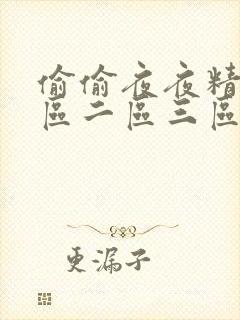 偷偷夜夜精
區二區三區
更漏子